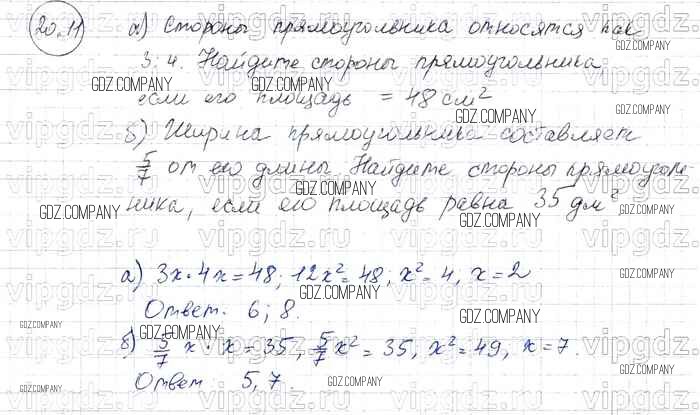 20.11 а) Стороны прямоугольника относятся как
3:4. Найдите стороны прямоугольника,
если его площадь = 48 см²
б) Ширина прямоугольника составляет
5/7 от его длины. Найдите стороны прямоуголь
ника, если его площадь равна 35 дм²
а) 3x·4x=48; 12x²=48; x²=4, x=2
Ответ. 6; 8.
б) 5/7 x·x=35, 5/7 x²=35, x²=49, x=7.
Ответ 5,7.
GDZ.COMPANY
vipgdz.ru